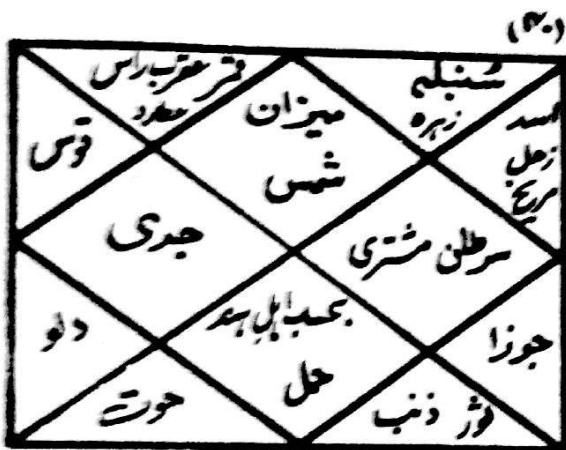 (۴۰)
قمر عقرب راس
عطارد
سنبلہ
زہرہ
میزان
شمس
اسد
زحل
مریخ
قوس
جدی
سرطان مشتری
دلو
بحسب اہل ہند
حمل
جوزا
حوت
ثور ذنب